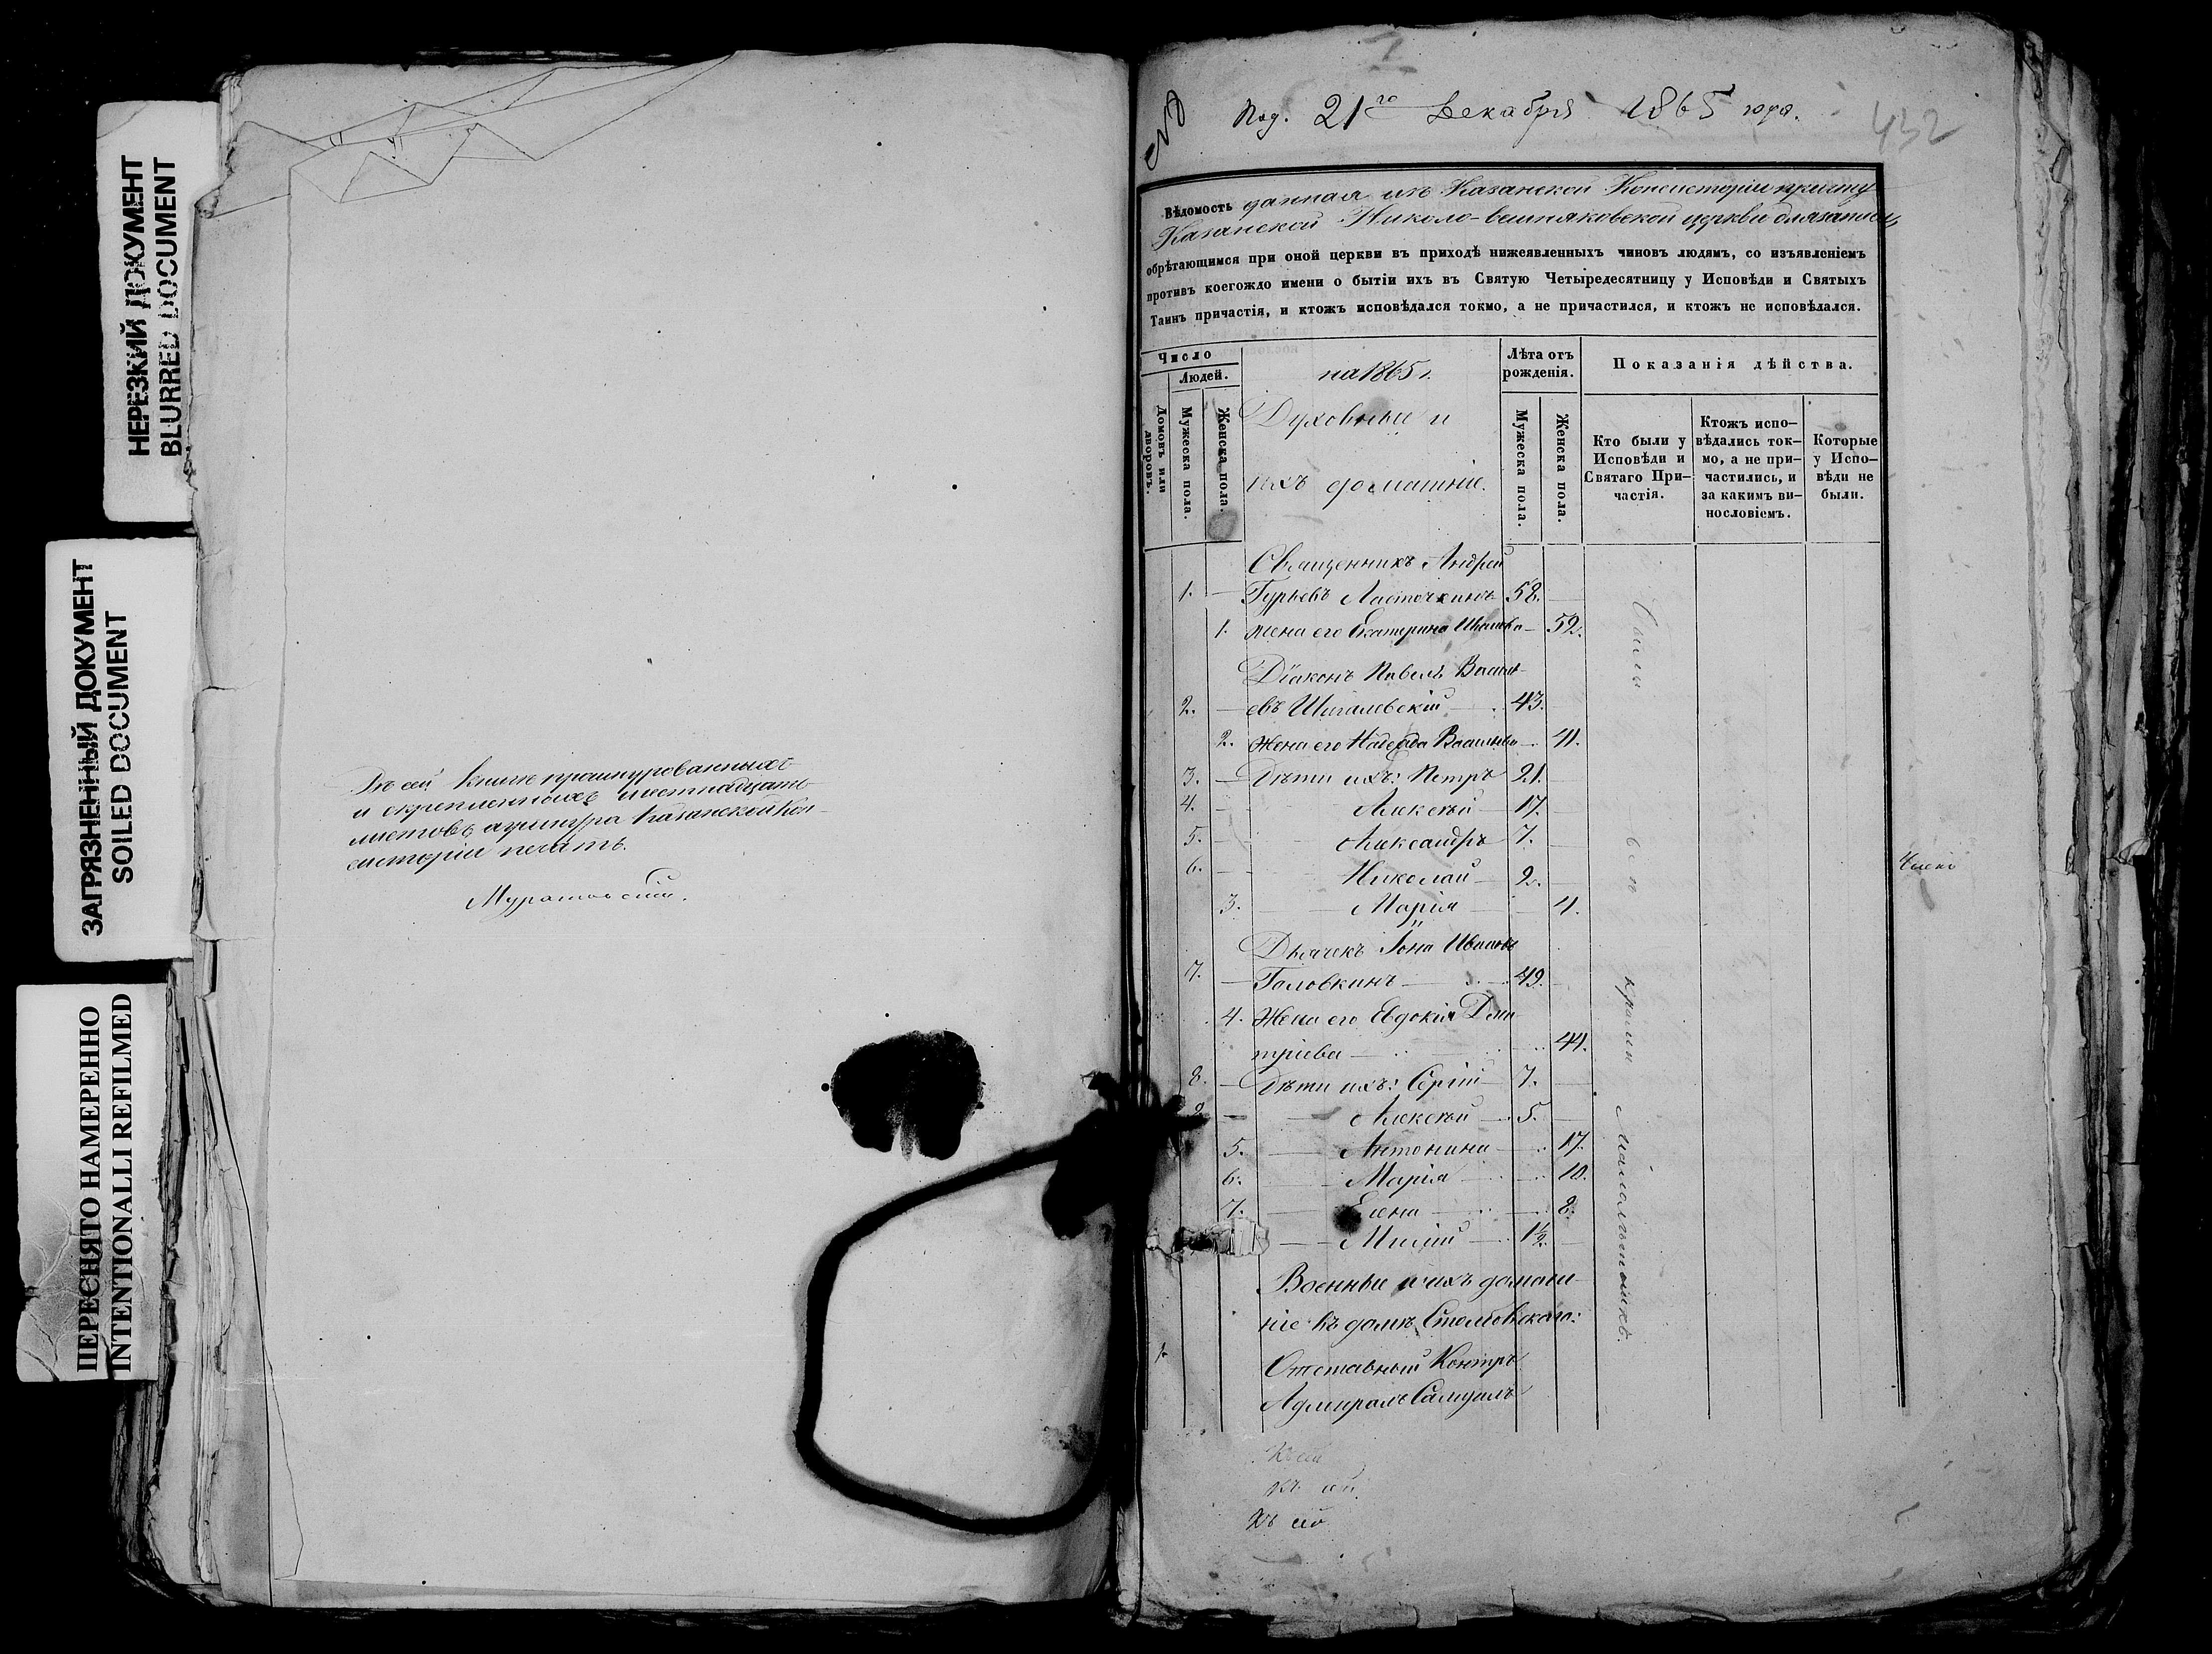 НЕРЕЗКИЙ ДОКУМЕНТ
BLURRED DOCUMENT
ЗАГРЯЗНЕННЫЙ ДОКУМЕНТ
SOILED DOCUMENT
ПЕРЕСНЯТО НАМЕРЕННО
INTENTIONALLI REFILMED
Въ сей книгѣ прошнурованныхъ
и скрѣпленныхъ шестнадцать
листовъ а у шнура Казанской Кон-
систоріи печать.
Под. 21го Декабря 1865 года.
432
Вѣдомость данная изъ Казанской Консисторіи причту
Казанской Николо-вешняковской церкви для записи
обрѣтающимся при оной церкви въ приходѣ нижеявленныхъ чиновъ людямъ, со изъявленіемъ
противъ коегождо имени о бытіи ихъ въ Святую Четыредесятницу у Исповѣди и Святыхъ
Таинъ причастія, и ктожъ исповѣдался токмо, а не причастился, и ктожъ не исповѣдался.
Число
Людей.
Домовъ или дворовъ.
Мужеска пола.
Женска пола.
на 1865 г.
Духовные и
ихъ домашніе.
Лѣта отъ рожденія.
Мужеска пола.
Женска пола.
Показанія дѣйства.
Кто были у Исповѣди и Святаго При-частія.
Ктожъ испо-вѣдались ток-мо, а не при-частились, и за какимъ ви-нословіемъ.
Которые у Испо-вѣди не были.
Священникъ Андрей
1. Гурьевъ Ласточкинъ 58.
1. жена его Екатерина Иванова 52.
Діаконъ Павелъ Василь-
2. евъ Шигалевскій 43.
2. Жена его Надежда Васильева 41.
3. Дѣти ихъ: Петръ 21.
4. Алексѣй 17.
5. Александръ 7.
6. Николай 2.
3. Марія 4.
Дьячекъ Іона Ивановъ
7. Головкинъ 49.
4. Жена его Евдокія Дми
тріева 44.
8. Дѣти ихъ: Сергій 7.
9. Алексѣй 5.
5. Антонина 17.
6. Марія 10.
7. Елена 8.
1½
Были всѣ кромѣ малолѣтнихъ.
Военные и ихъ домаш
ніе въ домѣ
1. Отставный Контръ
Адмиралъ Самуилъ
Число